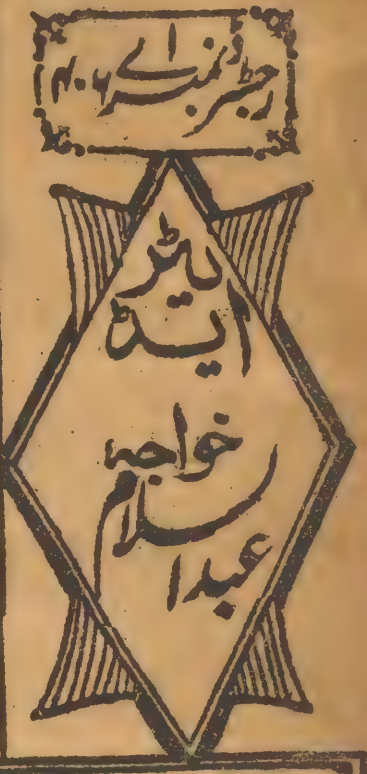 رجسٹرڈ نمبر اے
ایڈیٹر
خواجہ
عبدالسلام